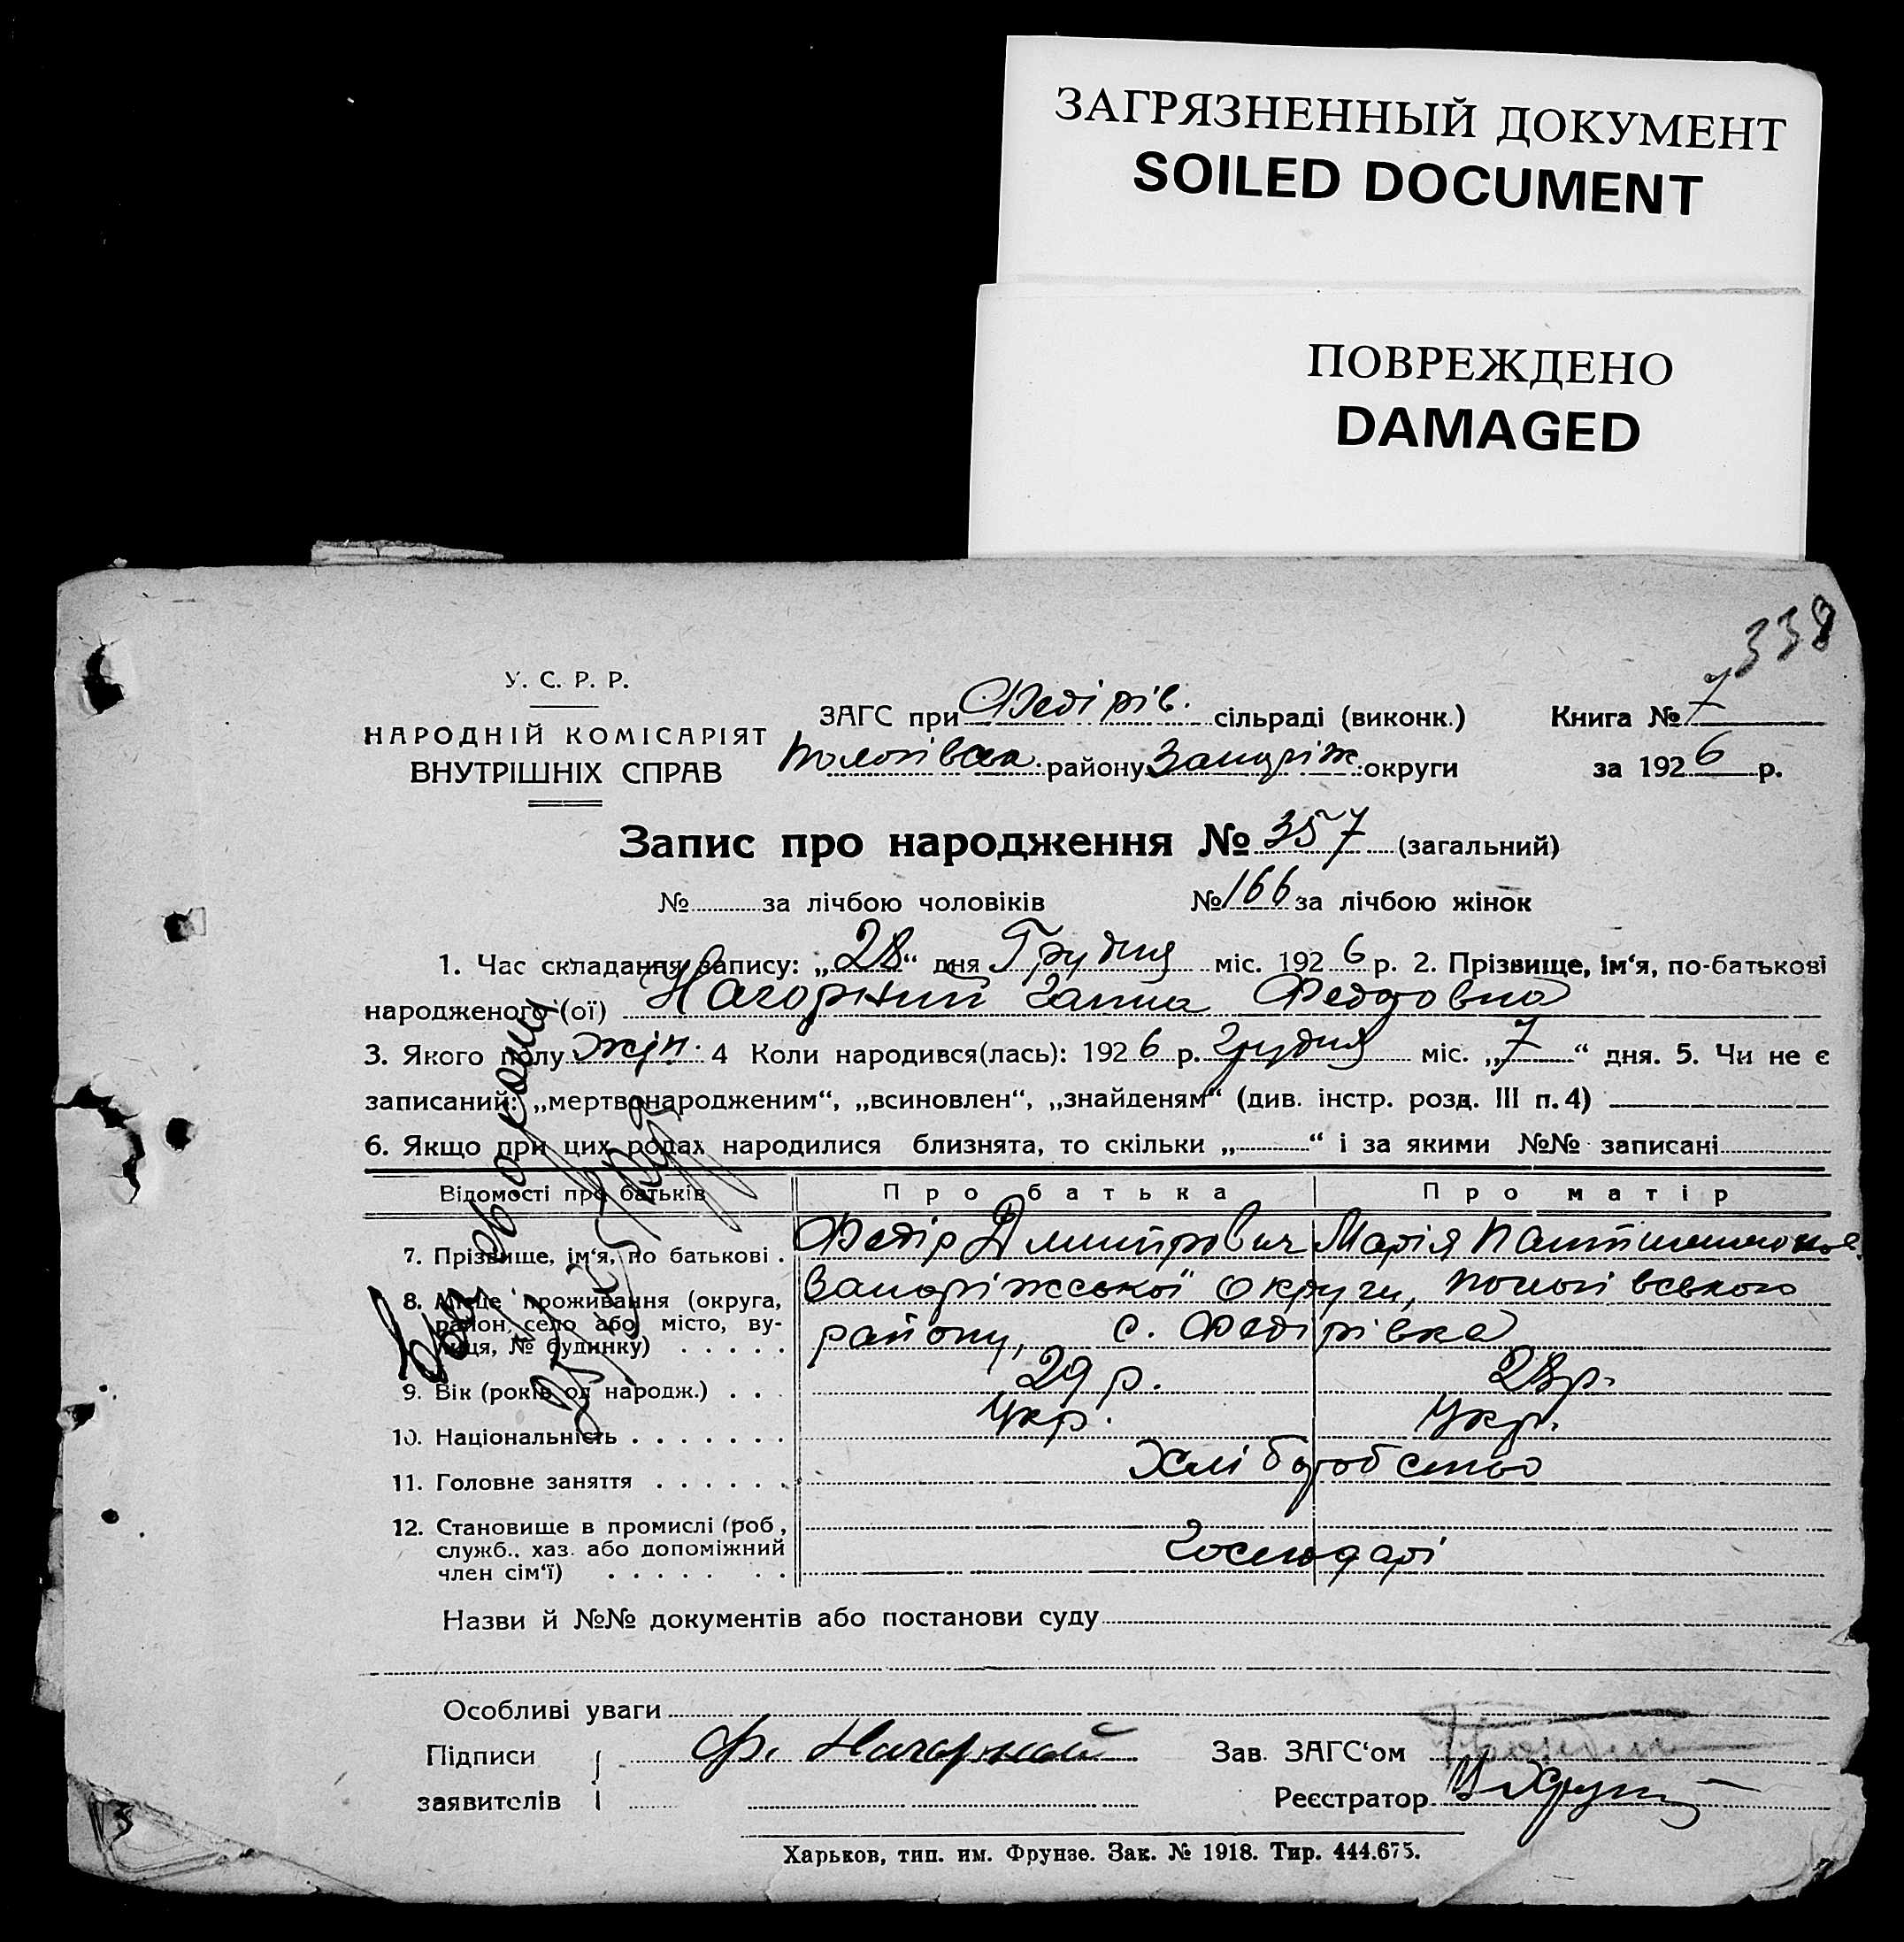 ЗАГРЯЗНЕННЫЙ ДОКУМЕНТ
SOILED DOCUMENT
ПОВРЕЖДЕНО
DAMAGED
338
У. С. Р. Р.
НАРОДНІЙ КОМІСАРІЯТ
ВНУТРІШНІХ СПРАВ
ЗАГС при Федірів. сільраді (виконк.)
Пологівськ. району Запоріж. округи
Книга № 7
за 1926 р.
Запис про народження № 357 (загальний)
№ за лічбою чоловіків № 166 за лічбою жінок
1. Час складання запису: „28“ дня Грудня міс. 1926 р. 2. Прізвище, ім‘я, по-батькові
народженого (ої) Нагорний Ганна Федоровна
3. Якого полу жін. 4 Коли народився(лась): 1926 р. Грудня міс. „7“ дня. 5. Чи не є
записаний: „мертвонародженим“, „всиновлен“, „знайденям“ (див. інстр. розд. III п. 4)
6. Якщо при цих родах народилися близнята, то скільки „ “ і за якими №№ записані
Відомості про батьків Про батька Про матір
7. Прізвище, ім‘я, по батькові . Федір Дмитрович Марія
8. Місце проживання (округа, Запоріжської округи, Пологівського
район, село або місто, ву-
лиця, № будинку) . . . . . району, с. Федірівка
9. Вік (років од народж.) . . . 29 р. 28 р.
10. Національність . . . . . . . Укр. Укр.
11. Головне заняття . . . . . . Хліборобство
12. Становище в промислі (роб,
служб.. хаз. або допоміжний Господарі
член сім‘ї) . . . . . . .
Назви й №№ документів або постанови суду
Особливі уваги
Підписи Ф. Нагорний Зав. ЗАГС‘ом
заявителів Реєстратор
Харьков, тип. им. Фрунзе. Зак. № 1918. Тир. 444.675.
3